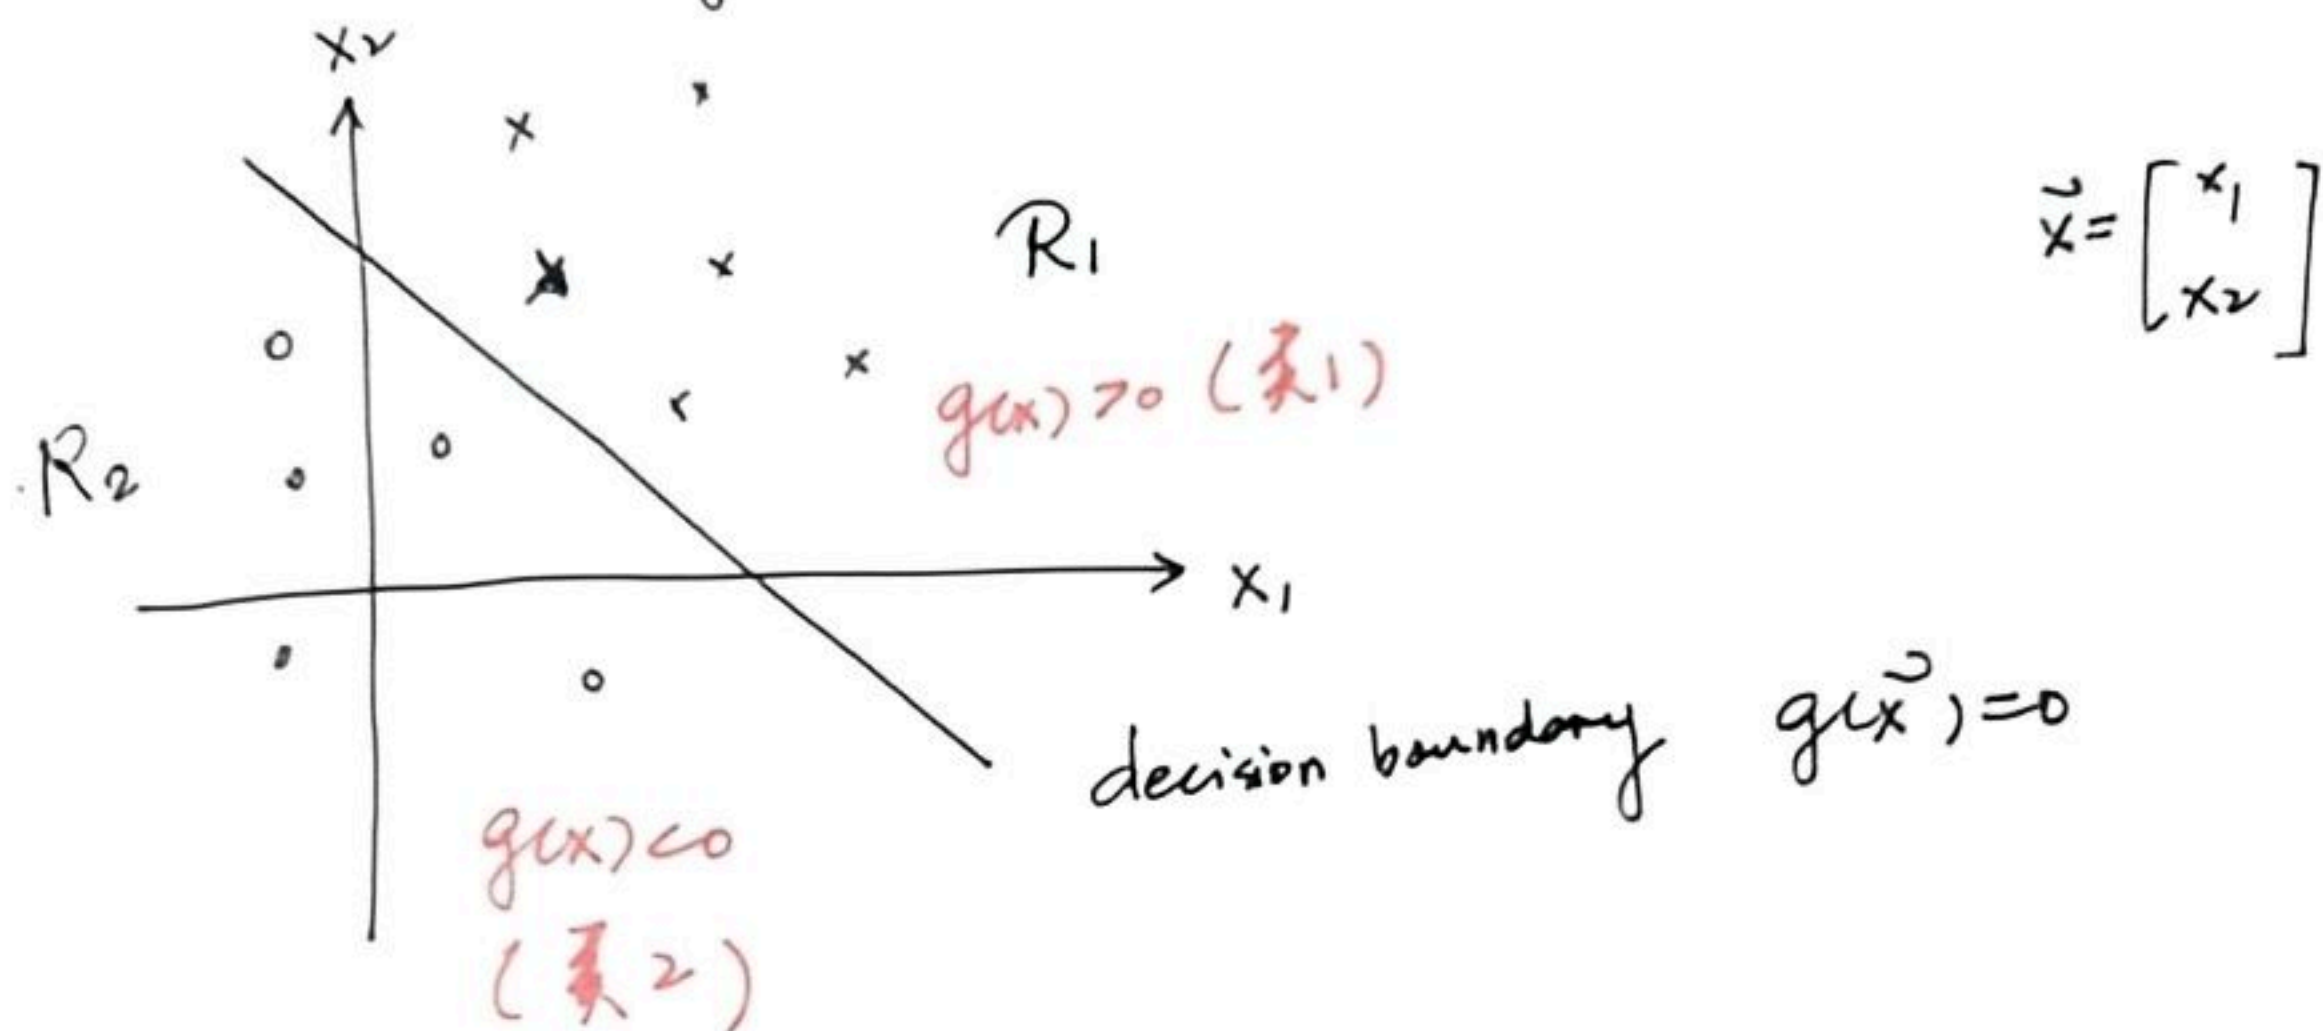 x2
R1
x⃗ = [ x1
x2 ]
g(x) > 0 (类1)
R2
x1
decision boundary g(x⃗) = 0
g(x) < 0
(类2)